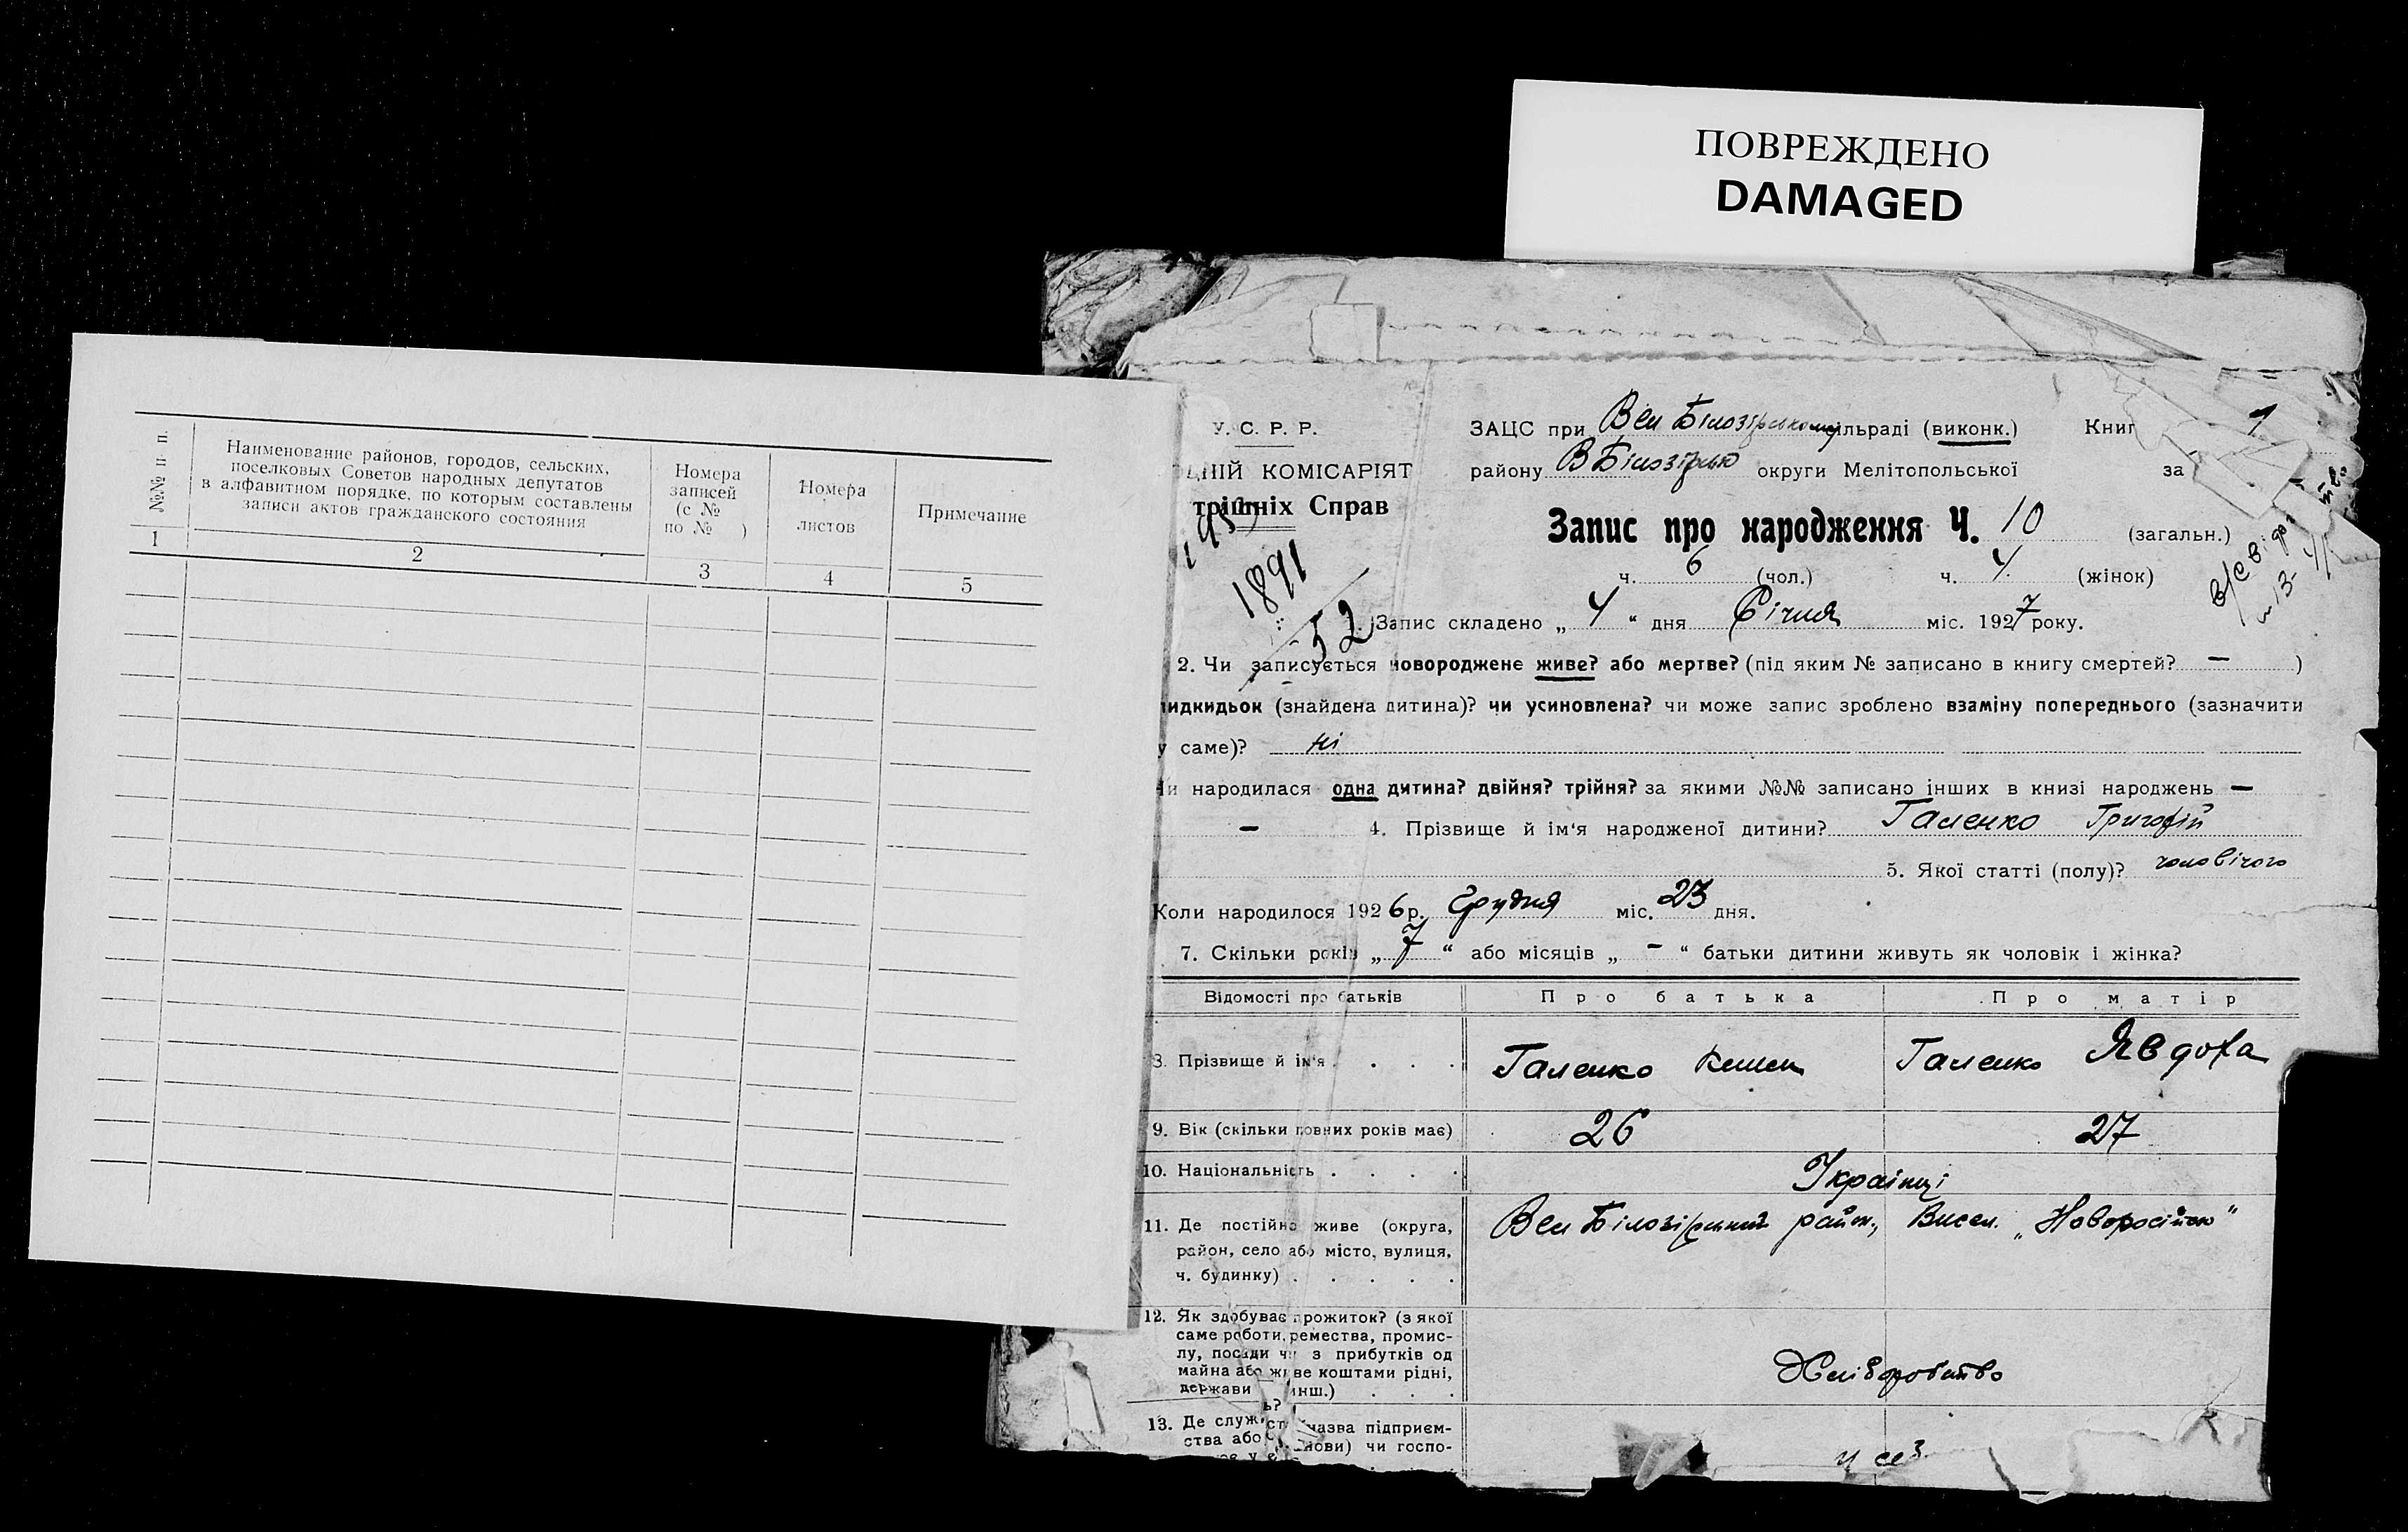 ПОВРЕЖДЕНО
DAMAGED
№№ п п.
Наименование районов, городов, сельских,
поселковых Советов народных депутатов
в алфавитном порядке, по которым составлены
записи актов гражданского состояния
Номера
записей
(с №
по № )
Номера
листов
Примечание
1 2 3 4 5
У. С. Р. Р.
ДНІЙ КОМІСАРІЯТ
трішніх Справ
1891
52
ЗАЦС при Вел Білозірському льраді (виконк.) Книг 1
району В Білозірсько округи Мелітопольської за
Запис про народження Ч. 10 (загальн.)
ч. 6 (чол.) ч. 4 (жінок)
Запис складено „ 4 “ дня Січня міс. 1927 року.
2. Чи записується новороджене живе? або мертве? (під яким № записано в книгу смертей? — )
идкидьок (знайдена дитина)? чи усиновлена? чи може запис зроблено взаміну попереднього (зазначити
у саме)? ні
и народилася одна дитина? двійня? трійня? за якими №№ записано інших в книзі народжень —
— 4. Прізвище й ім'я народженої дитини? Галенко Григорій
5. Якої статті (полу)? чоловічого
Коли народилося 1926 р. Грудня міс. 23 дня.
7. Скільки років „ 7 “ або місяців „ - “ батьки дитини живуть як чоловік і жінка?
Відомості про батьків Про батька Про матір
8. Прізвище й ім'я . . . . Галенко Галенко Явдоха
9. Вік (скільки повних років має) 26 27
10. Національність . . . . Українці
11. Де постійно живе (округа,
район, село або місто, вулиця,
ч. будинку) . . . . .
Вел Білозірський район, Висел. „Новоросійсю“
12. Як здобуває прожиток? (з якої
саме роботи, ремества, промис-
лу, посади чи з прибутків од
майна або живе коштами рідні,
держави инш.) . . .
Хліборобство
13. Де служ ст назва підприєм-
ства або нови) чи госпо-